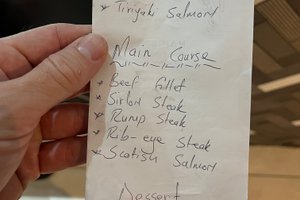 * Tiriyaki Salmont
Main Course
* Beef fillet
* Sirlon Steak
* Rump Steak
* Rib-eye Steak
* Scotish Salmont
Dessert